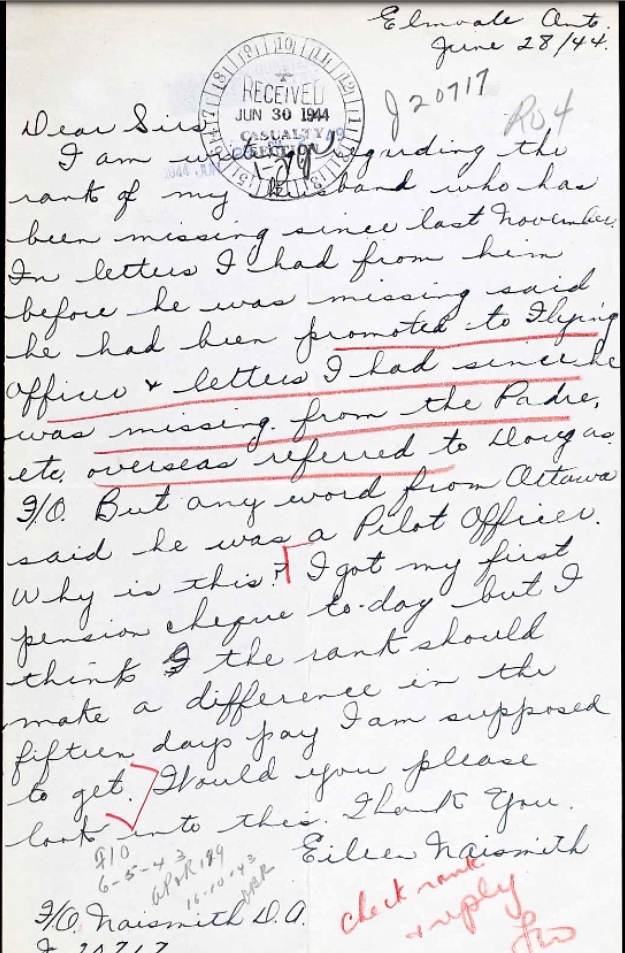 Elmvale Ont.
June 28/44.
RECEIVED
JUN 30 1944
CASUALTY
SECTION
J20717
R04
Dear Sirs
I am regarding the
rank of my husband who has
been missing since last November.
In letters I had from him
before he was missing said
he had been promoted to Flying
Officer & letters I had since he
was missing. from the Padre,
etc. overseas referred to Doug as
F/O. But any word from Ottawa
said he was a Pilot Officer.
Why is this? I got my first
pension cheque to-day but I
think the rank should
make a difference in the
fifteen days pay I am supposed
to get. Would you please
look into this. Thank You.
Eileen Naismith
F/O
6-5-43
16-10-43
check rank
& reply
F/O. Naismith D.A.
J 20717